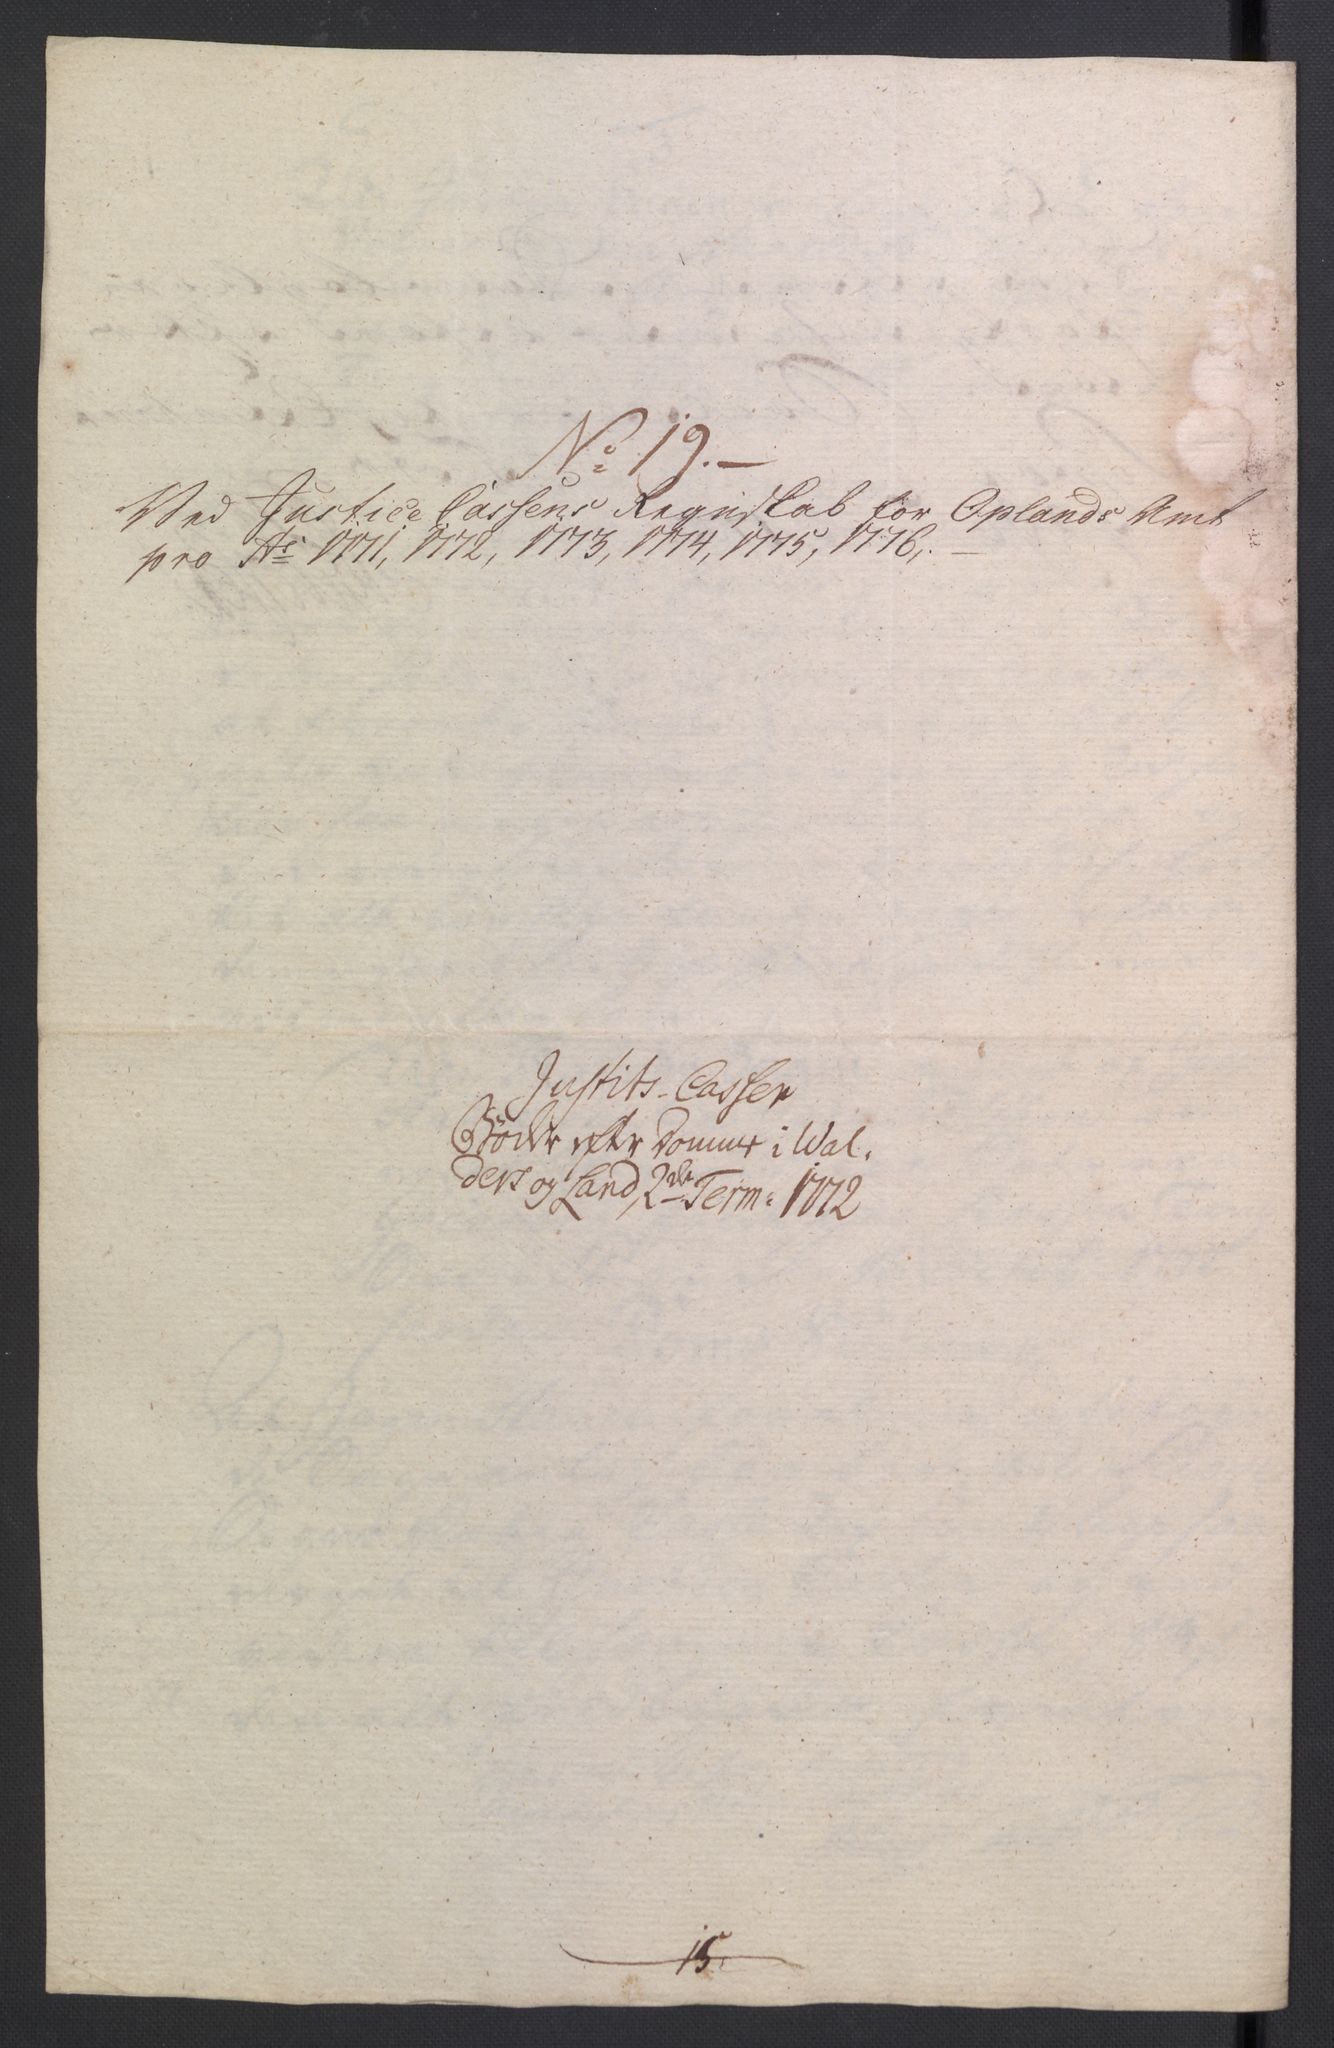 No 19.
Ved Justice Cassens Regnskab for Oplands Amt
pro As 1771, 1772, 1773, 1774, 1775, 1776,.
Justits-Casser
Bøder efter Domme i Wal-
ders og Land, 2de Term: 1772
15.